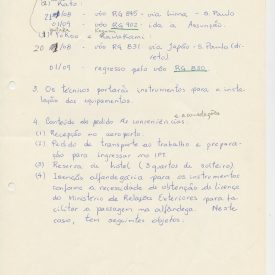 (2) Kato:
21/08 - vôo RG 845 - via Lima - S. Paulo
01/09 - vôo RG 902 - ida a Assunção.
(1) Pekoe e Kawakami:
20/08 - vôo RG 831 via Japão - S. Paulo (direto)
01/09 - regresso pelo vôo RG 830
3. Os técnicos portarão instrumentos para a instalação dos equipamentos.
e acomodações
4. Conteúdo do pedido de conveniências.
(1) Recepção no aeroporto.
(2) Pedido de transporte ao trabalho e preparação para ingressar no IPT
(3) Reserva de hotel (3 quartos de solteiro)
(4) Isenção alfandegária para os instrumentos
conforme a necessidade da obtenção de licença
do Ministério de Relações Exteriores para facilitar a passagem na alfândega. Neste
caso, tem seguintes objetos.